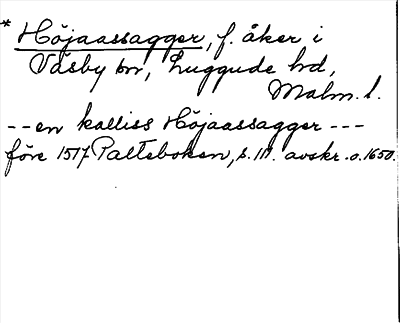 * Höjaassagger, f. åker i
Väsby sn, Luggude hd,
Malm. l.
-- en kalliss Höjaassagger ---
före 1517 Palteboken, s. 111. avskr. o. 1650.